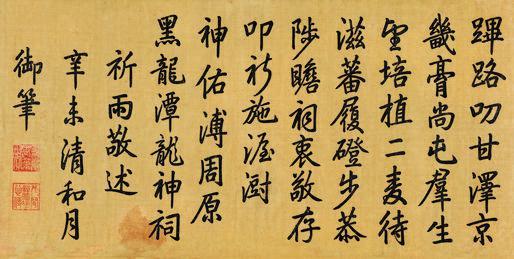 蹕路叨甘澤京
畿膏尚屯羣生
望培植二麥待
滋蕃履磴步恭
陟瞻祠衷敬存
叩祈施渥澍
神佑溥周原
黑龍潭龍神祠
祈雨敬述
辛未清和月
御筆